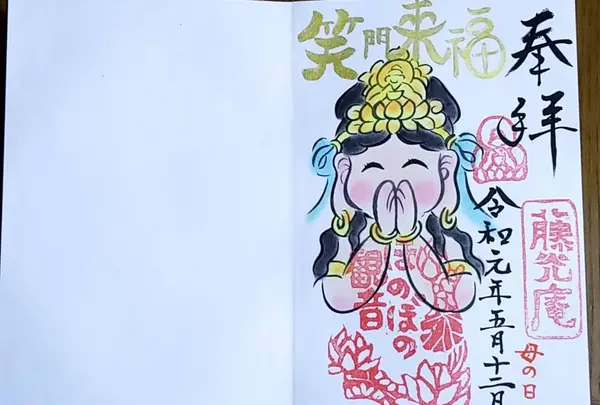 奉拝
令和元年五月十二日
母の日
藤光庵
笑門来福
ほのぼの
観音